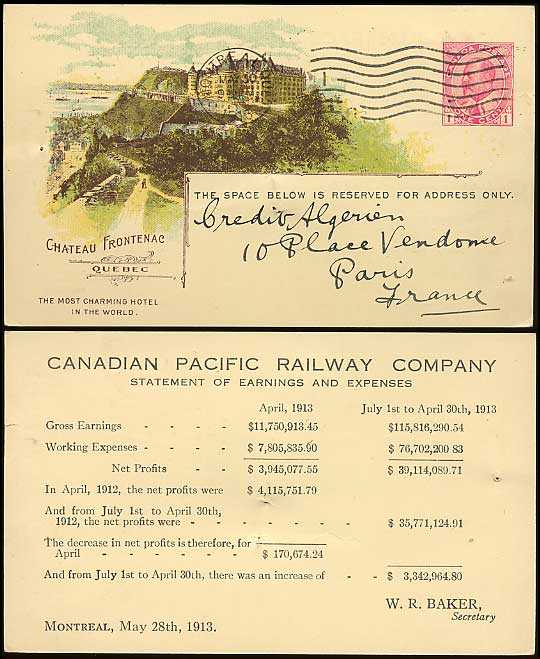 CANADA POSTAGE
1 ONE CENT 1
MAY 30
THE SPACE BELOW IS RESERVED FOR ADDRESS ONLY.
Credit Algerien
10 Place Vendome
Paris
France
CHATEAU FRONTENAC
QUEBEC
THE MOST CHARMING HOTEL
IN THE WORLD.
CANADIAN PACIFIC RAILWAY COMPANY
STATEMENT OF EARNINGS AND EXPENSES
April, 1913 July 1st to April 30th, 1913
Gross Earnings - - - - $11,750,913.45 $115,816,290.54
Working Expenses - - - - $ 7,805,835.90 $ 76,702,200 83
Net Profits - - $ 3,945,077.55 $ 39,114,089.71
In April, 1912, the net profits were $ 4,115,751.79
And from July 1st to April 30th,
1912, the net profits were - - - - - - - $ 35,771,124.91
The decrease in net profits is therefore, for
April - - - - - - $ 170,674.24
And from July 1st to April 30th, there was an increase of - - $ 3,342,964.80
W. R. BAKER,
Secretary
MONTREAL, May 28th, 1913.